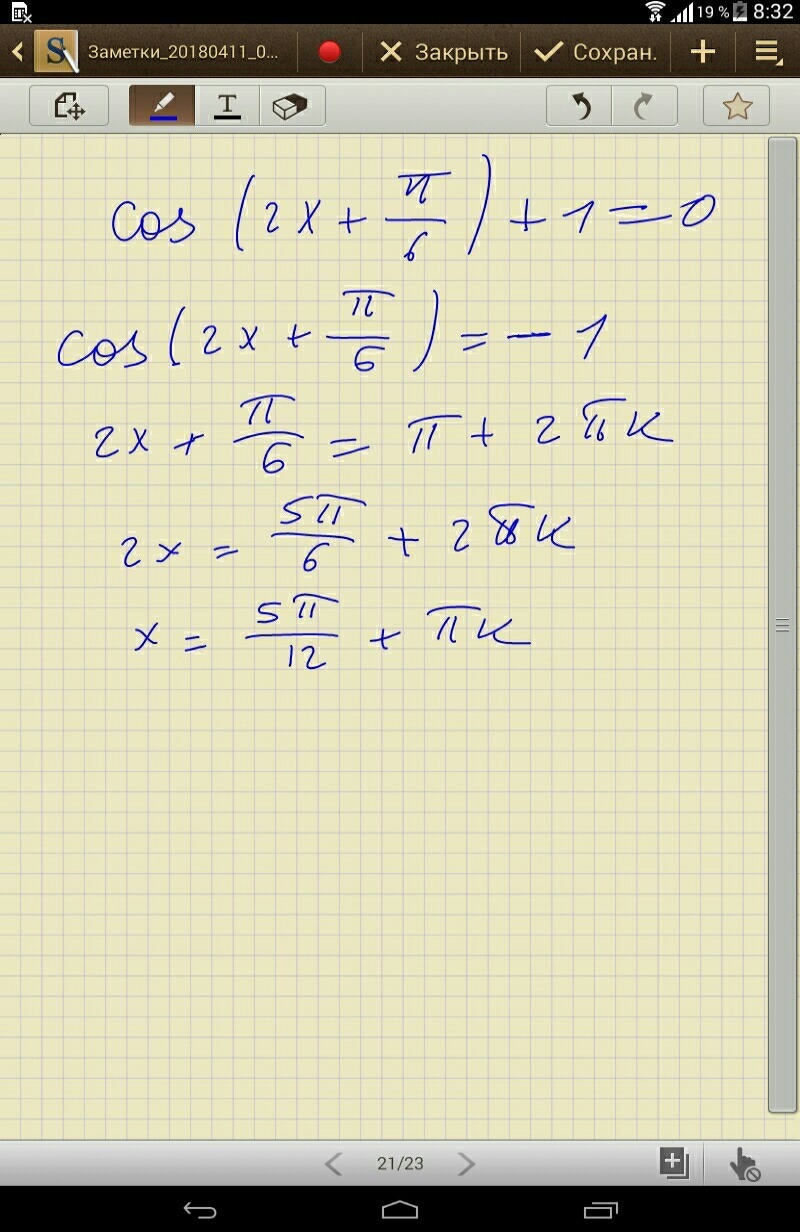 19 % 8:32
Заметки_20180411_0... Закрыть Сохран.
T
cos (2x + π/6) + 1 = 0
cos (2x + π/6) = - 1
2x + π/6 = π + 2πk
2x = 5π/6 + 2πk
x = 5π/12 + πk
21/23